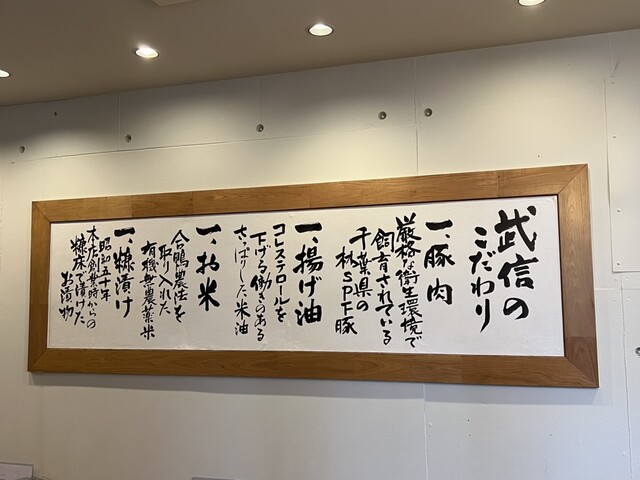 武信の
こだわり
一、豚肉
厳格な衛生環境で
飼育されている
千葉県の
林SPF豚
一、揚げ油
コレステロールを
下げる働きのある
さっぱりした米油
一、お米
合鴨農法を
取り入れた
有機無農薬米
一、糠漬け
昭和五十年
本店創業時からの
糠床で漬けた
お漬物